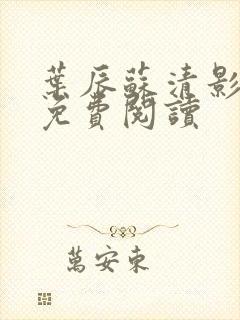 葉辰蘇清影
免費閱讀
萬安東